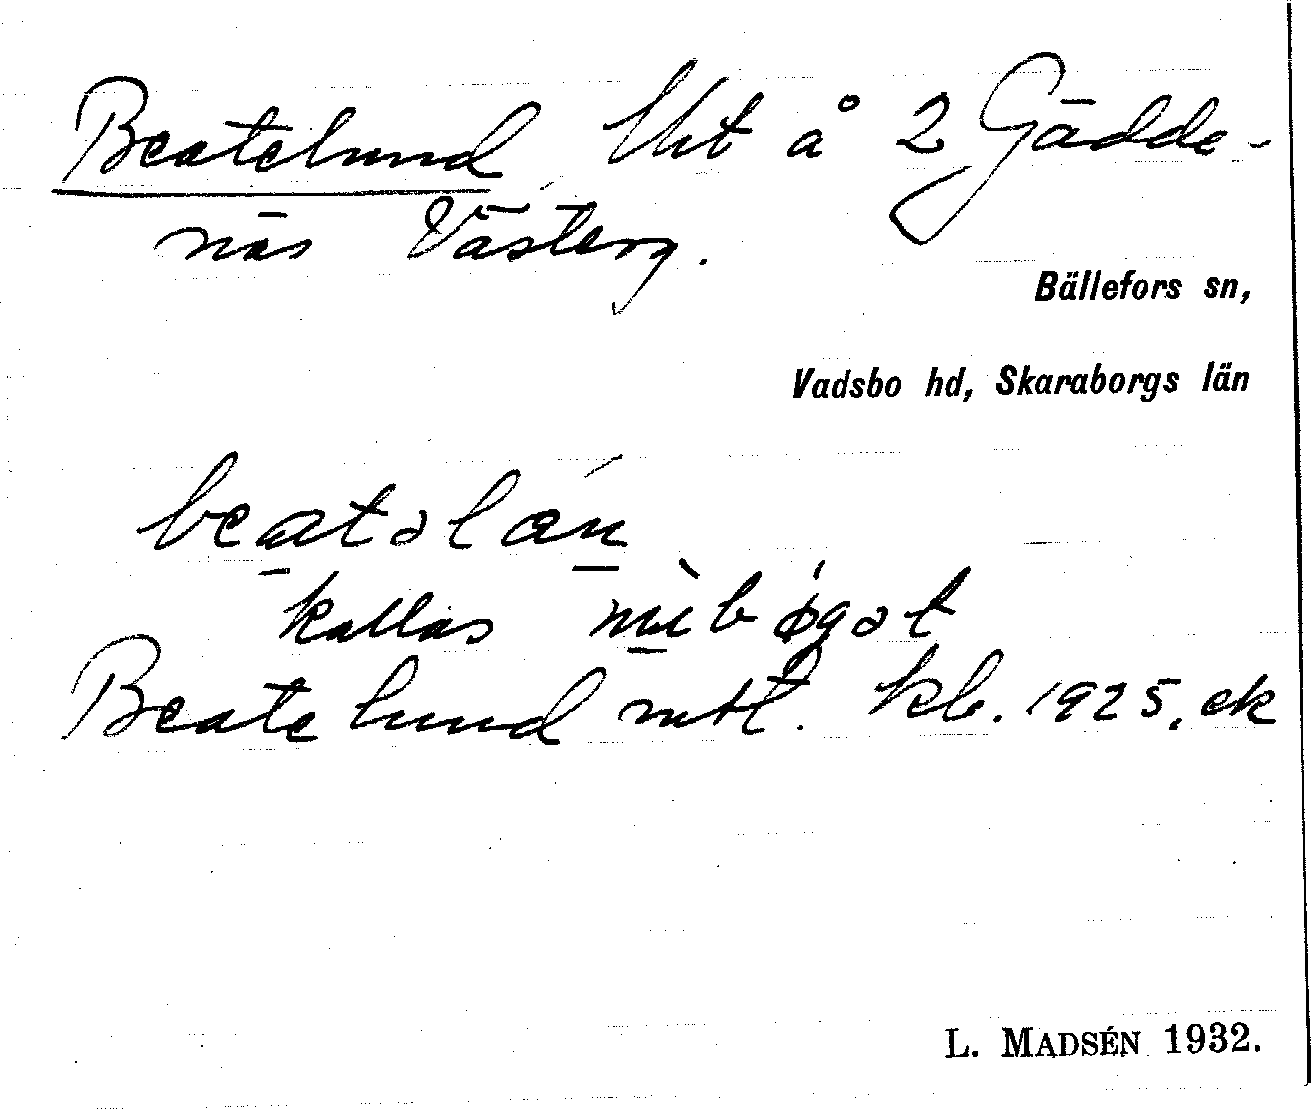 Beatelund lht å 2 Gädde-
näs Västerg.
Bällefors sn,
Vadsbo hd, Skaraborgs län
kallas
Beatelund mtl. kb. 1925, ek
L. MADSÉN 1932.